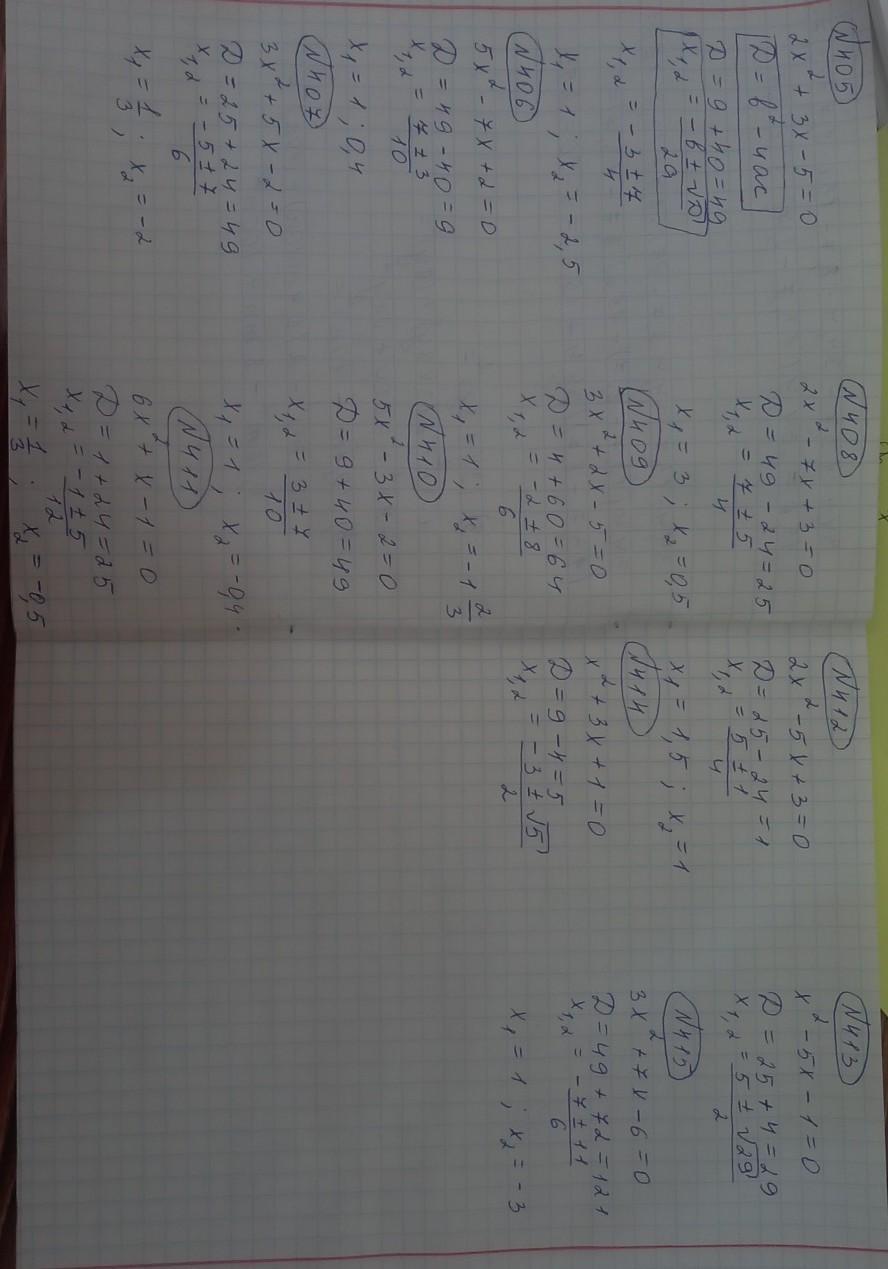 N405
2x² + 3x - 5 = 0
D = b² - 4ac
D = 9 + 40 = 49
x₁,₂ = (-b ± √D)/2a
x₁,₂ = (-3 ± 7)/4
x₁ = 1; x₂ = -2,5
N406
5x² - 7x + 2 = 0
D = 49 - 40 = 9
x₁,₂ = (7 ± 3)/10
x₁ = 1; 0,4
N407
3x² + 5x - 2 = 0
D = 25 + 24 = 49
x₁,₂ = (-5 ± 7)/6
x₁ = 1/3; x₂ = -2
N408
2x² - 7x + 3 = 0
D = 49 - 24 = 25
x₁,₂ = (7 ± 5)/4
x₁ = 3; x₂ = 0,5
N409
3x² + 2x - 5 = 0
D = 4 + 60 = 64
x₁,₂ = (-2 ± 8)/6
x₁ = 1; x₂ = -1 2/3
N410
5x² - 3x - 2 = 0
D = 9 + 40 = 49
x₁,₂ = (3 ± 7)/10
x₁ = 1; x₂ = -0,4.
N411
6x² + x - 1 = 0
D = 1 + 24 = 25
x₁,₂ = (-1 ± 5)/12
x₁ = 1/3; x₂ = -0,5
N412
2x² - 5x + 3 = 0
D = 25 - 24 = 1
x₁,₂ = (5 ± 1)/4
x₁ = 1,5; x₂ = 1
N414
x² + 3x + 1 = 0
D = 9 - 4 = 5
x₁,₂ = (-3 ± √5)/2
N413
x² - 5x - 1 = 0
D = 25 + 4 = 29
x₁,₂ = (5 ± √29)/2
N415
3x² + 7x - 6 = 0
D = 49 + 72 = 121
x₁,₂ = (-7 ± 11)/6
x₁ = 1; x₂ = -3